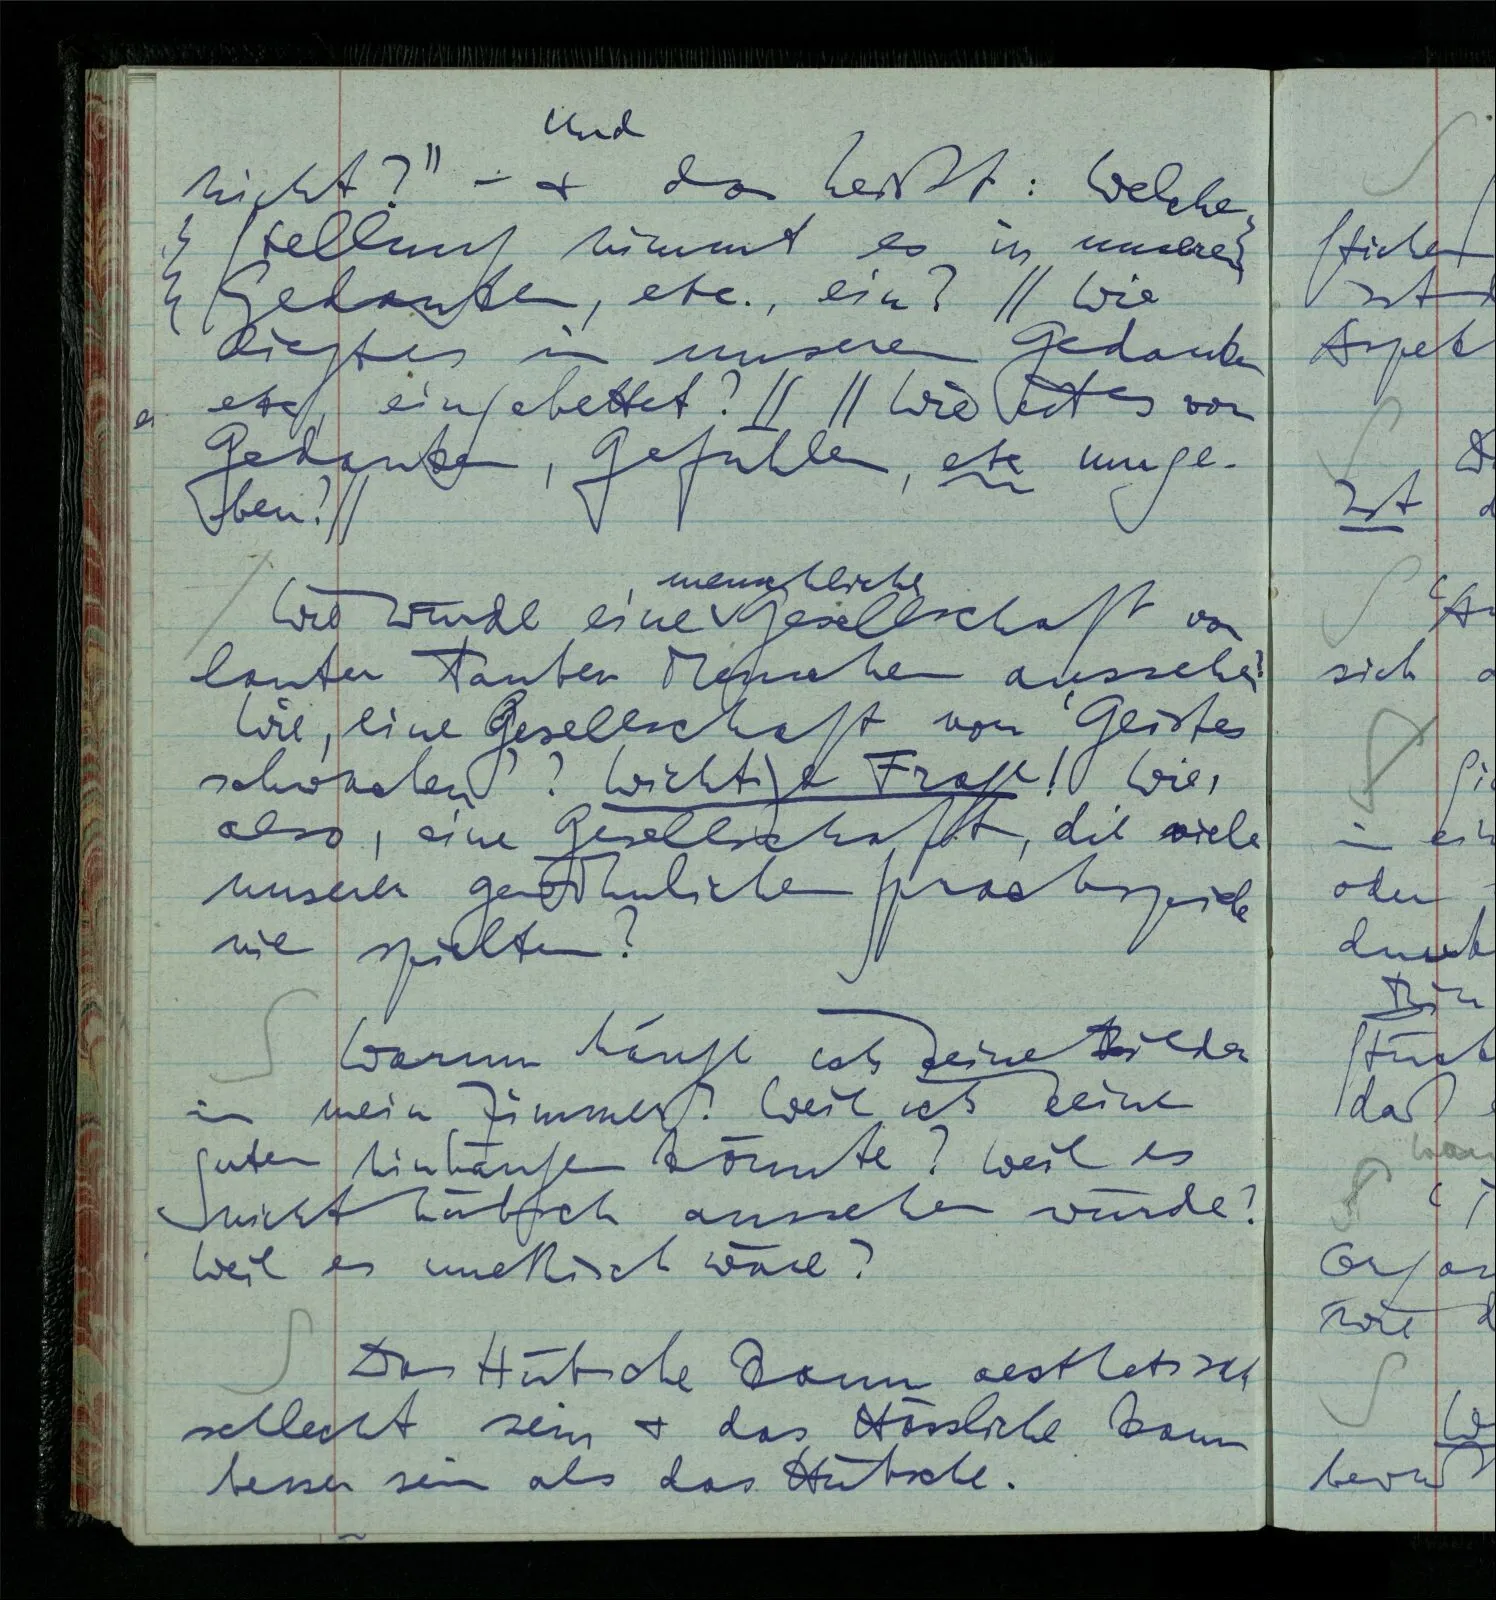 Und
nicht?" – + das heißt: Welche
Stellung nimmt es in unseren
Gedanken, etc., ein? // Wie
liegt es in unseren Gedanken
etc, eingebettet? // // Wie ist es von
Gedanken, Gefühlen, etc umge-
ben? //
menschliche
Wie würde eine Gesellschaft von
lauter tauben Menschen aussehen?
Wie, eine Gesellschaft von 'Geistes
schwachen'? Wichtige Frage! Wie,
also, eine Gesellschaft, die viele
unserer gewöhnlichen Sprachspiele
nie spielten?
Warum hänge ich keine Bilder
in mein Zimmer? Weil ich keine
guten hinhängen könnte? Weil es
nicht hübsch aussehen würde?
Weil es unethisch wäre?
Das Hübsche kann aesthetisch
schlecht sein + das Hässliche kann
besser sein als das Hübsche.
ist
Aspek
Ist
sich
in ein
oder
durch
Bin
daß
wie